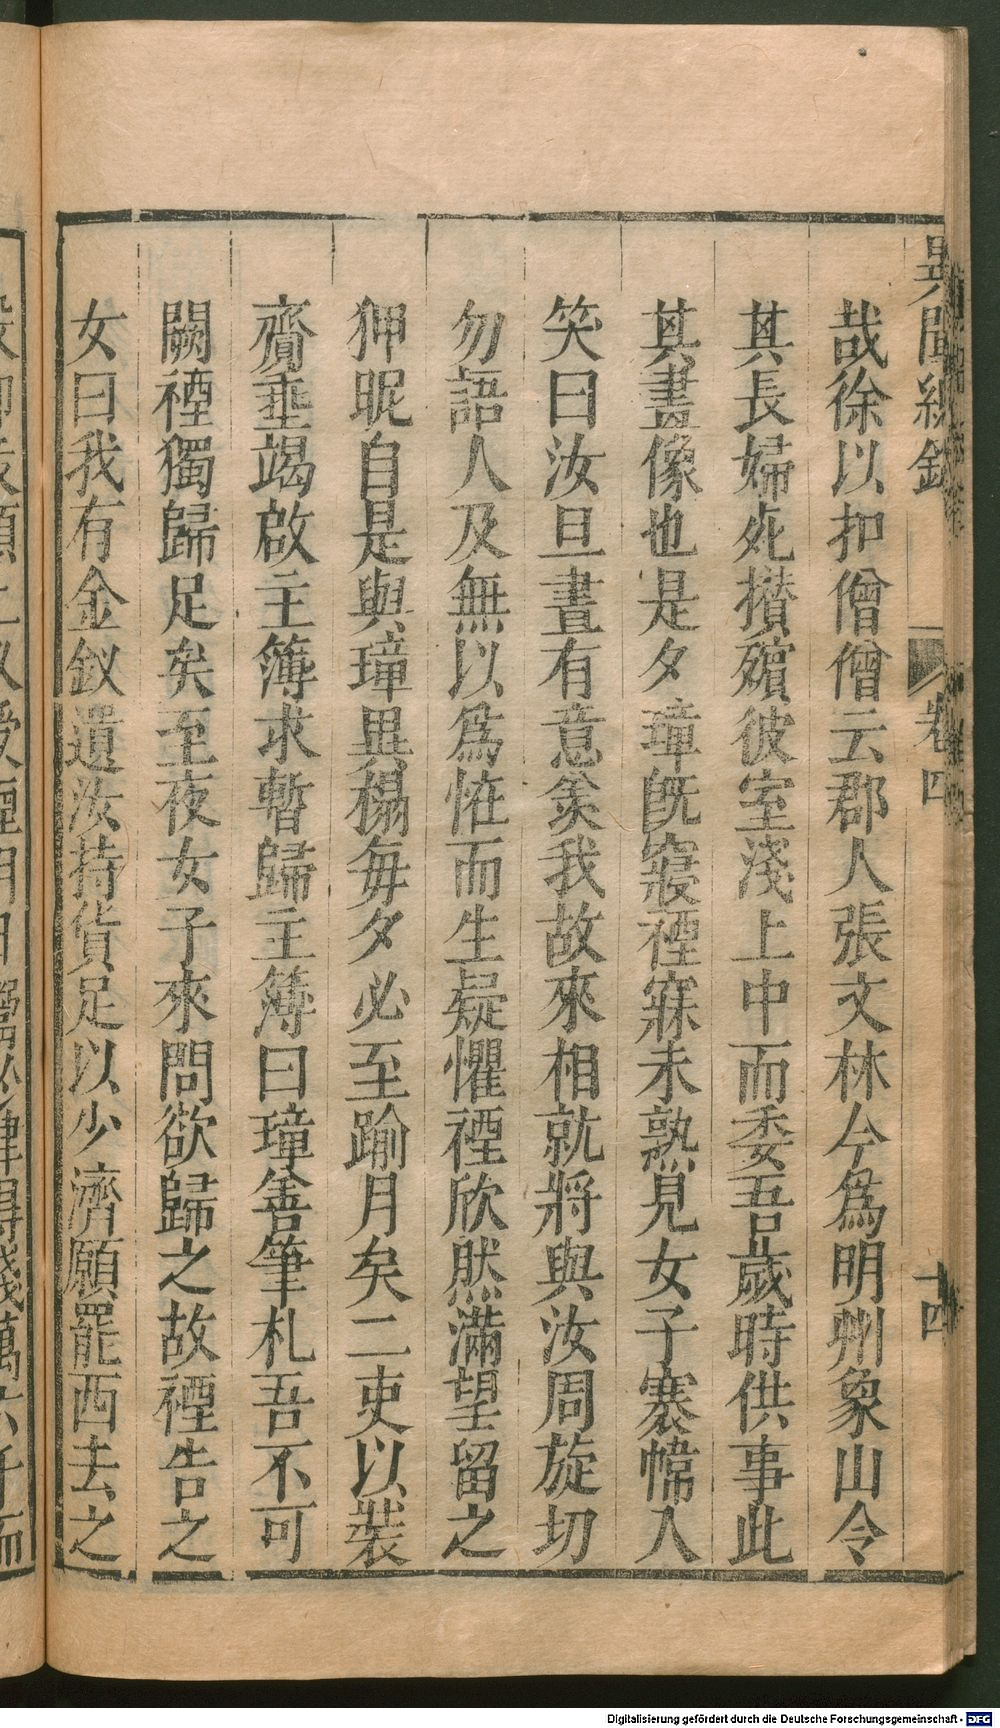 異聞總錄
卷四
十四
哉徐以扣僧僧云郡人張文林今爲明州象山令
其長婦死攢殯彼室淺土中而委吾歲時供事此
其畫像也是夕璋旣寢禋寐未熟見女子褰幃入
笑曰汝旦晝有意羡我故來相就將與汝周旋切
勿語人及無以爲怪而生疑懼禋欣然滿望留之
狎昵自是與璋異榻每夕必至踰月矣二吏以裝
齎垂竭啟主簿求暫歸主簿曰璋善筆札吾不可
闕禋獨歸足矣至夜女子來問欲歸之故禋告之
女曰我有金釵遺汝持貨足以少濟願罷西去之
Digitalisierung gefördert durch die Deutsche Forschungsgemeinschaft - DFG